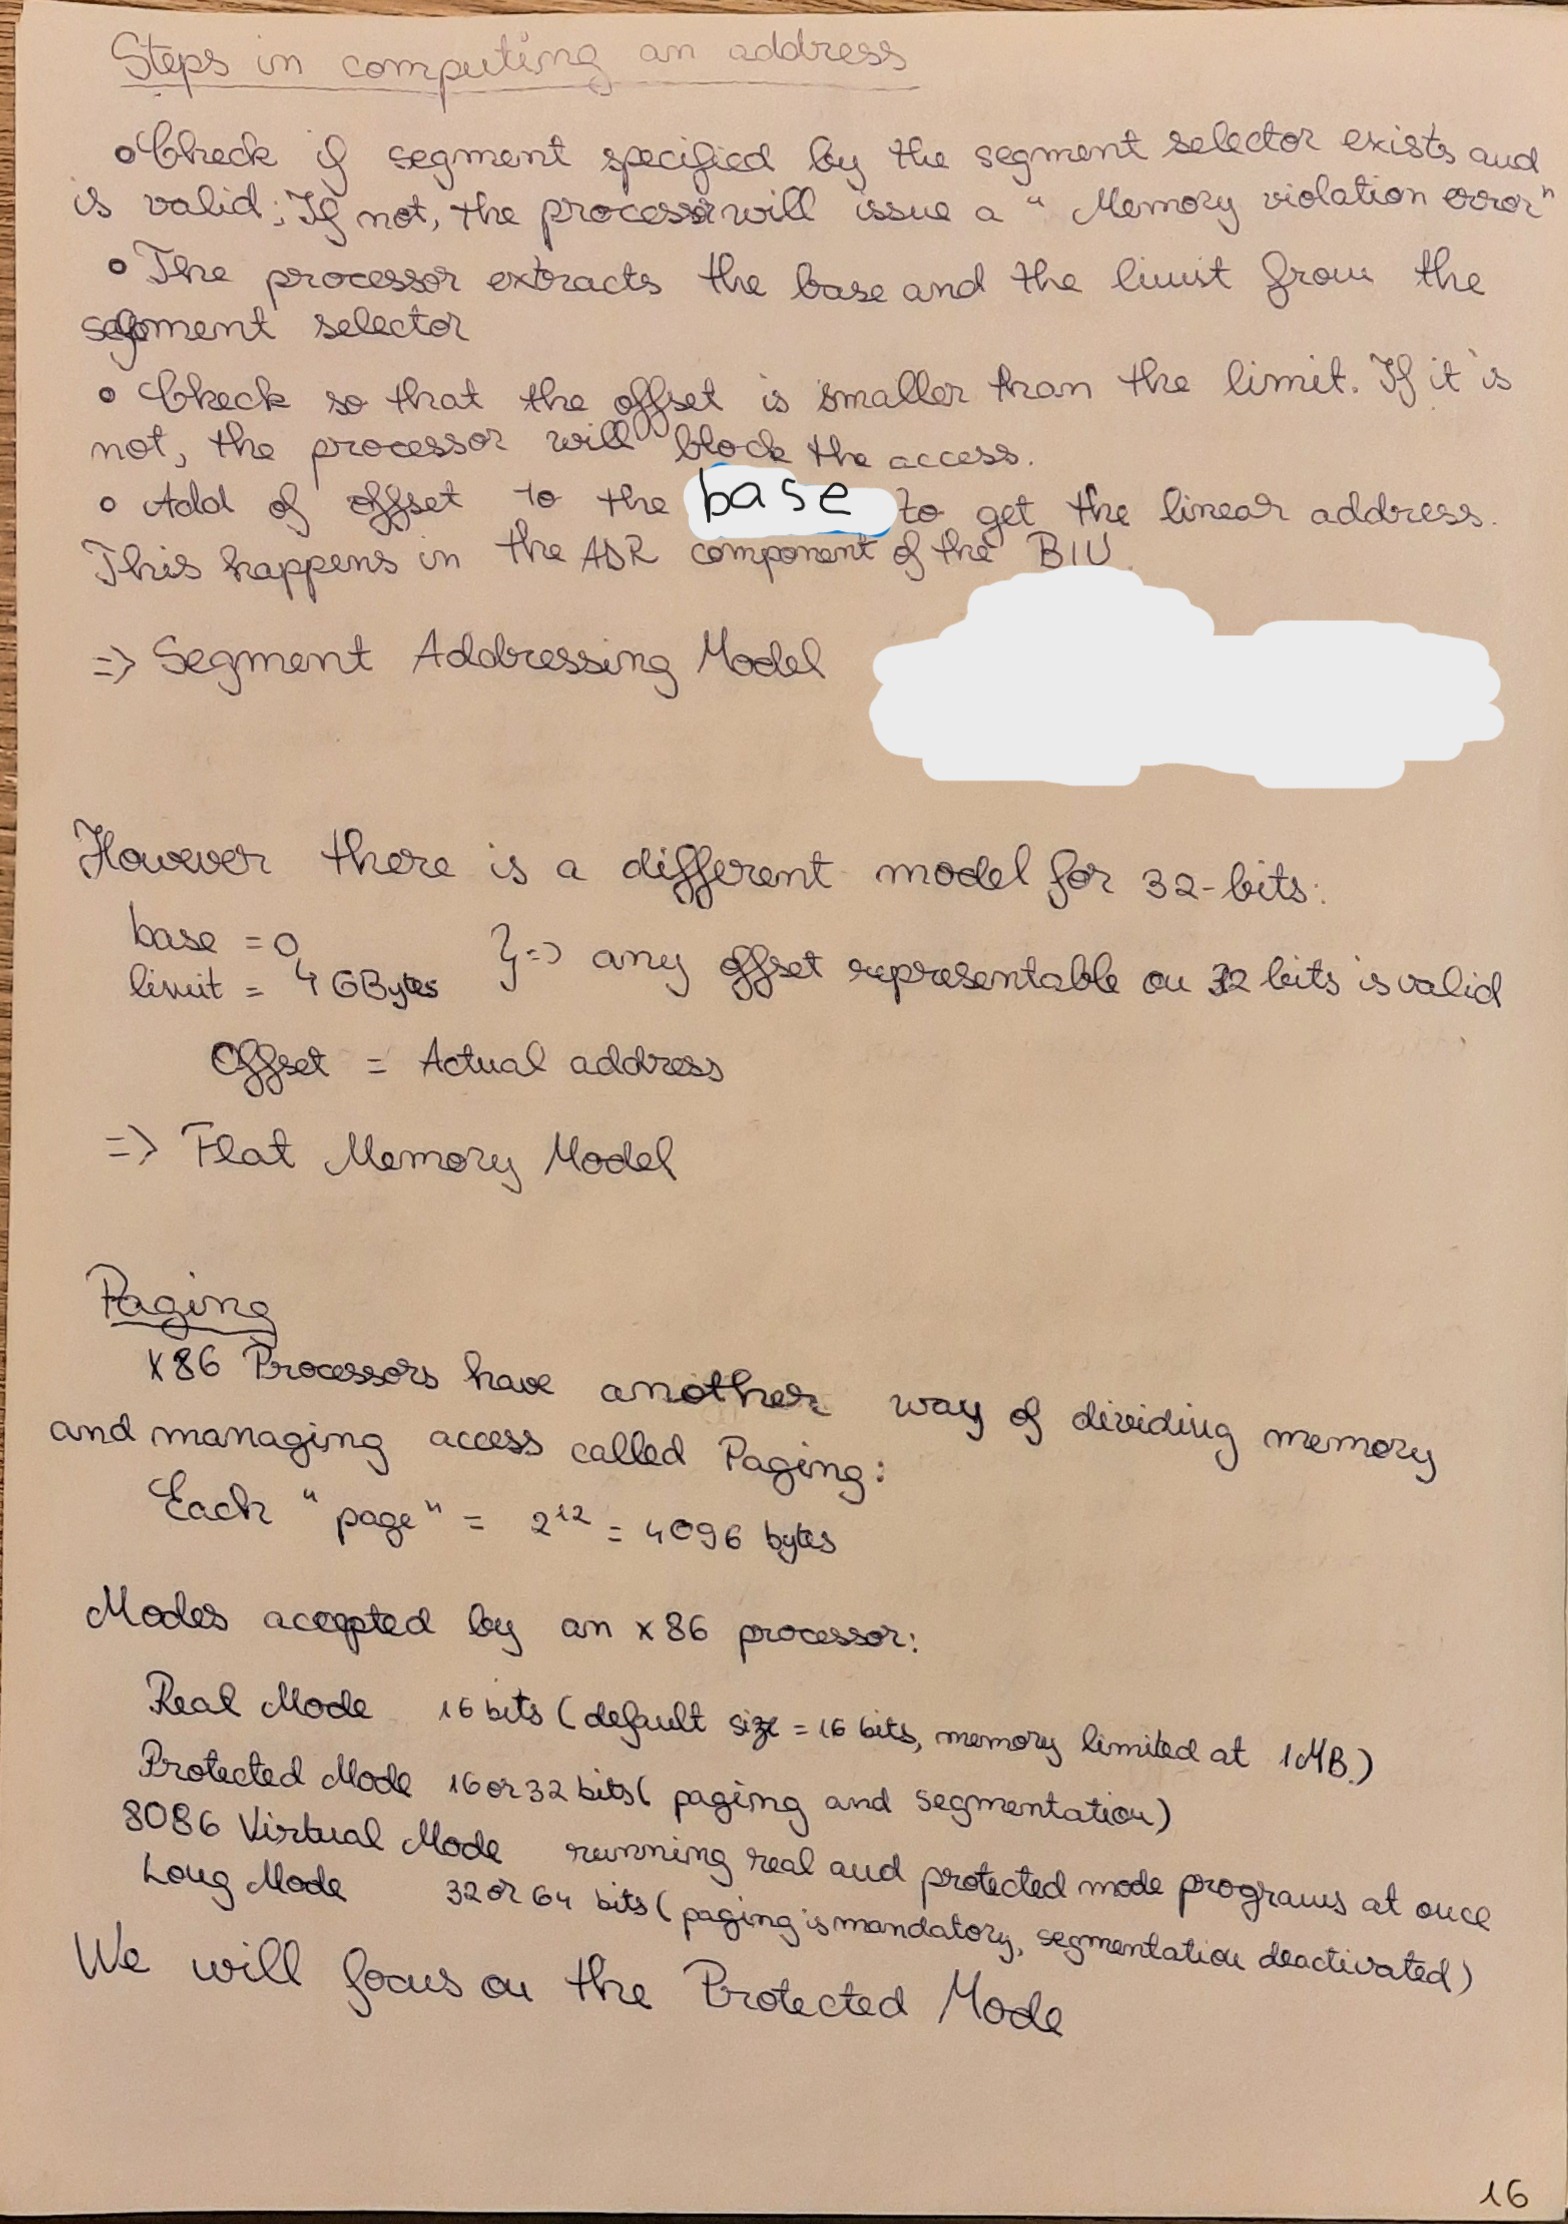 Steps in computing an address
• Check if segment specified by the segment selector exists and
is valid; If not, the processor will issue a " Memory violation error"
• The processor extracts the base and the limit from the
segment selector
• Check so that the offset is smaller than the limit. If it is
not, the processor will block the access.
• Add of offset to the base to get the linear address.
This happens in the ADR component of the BIU.
=> Segment Addressing Model
However there is a different model for 32-bits:
base = 0
limit = 4 GBytes } => any offset representable on 32 bits is valid
Offset = Actual address
=> Flat Memory Model
Paging
x86 Processors have another way of dividing memory
and managing access called Paging:
Each "page" = 2^12 = 4096 bytes
Modes accepted by an x86 processor:
Real Mode 16 bits (default size = 16 bits, memory limited at 1MB.)
Protected Mode 16 or 32 bits ( paging and segmentation)
8086 Virtual Mode running real and protected mode programs at once
Long Mode 32 or 64 bits ( paging is mandatory, segmentation deactivated)
We will focus on the Protected Mode
16